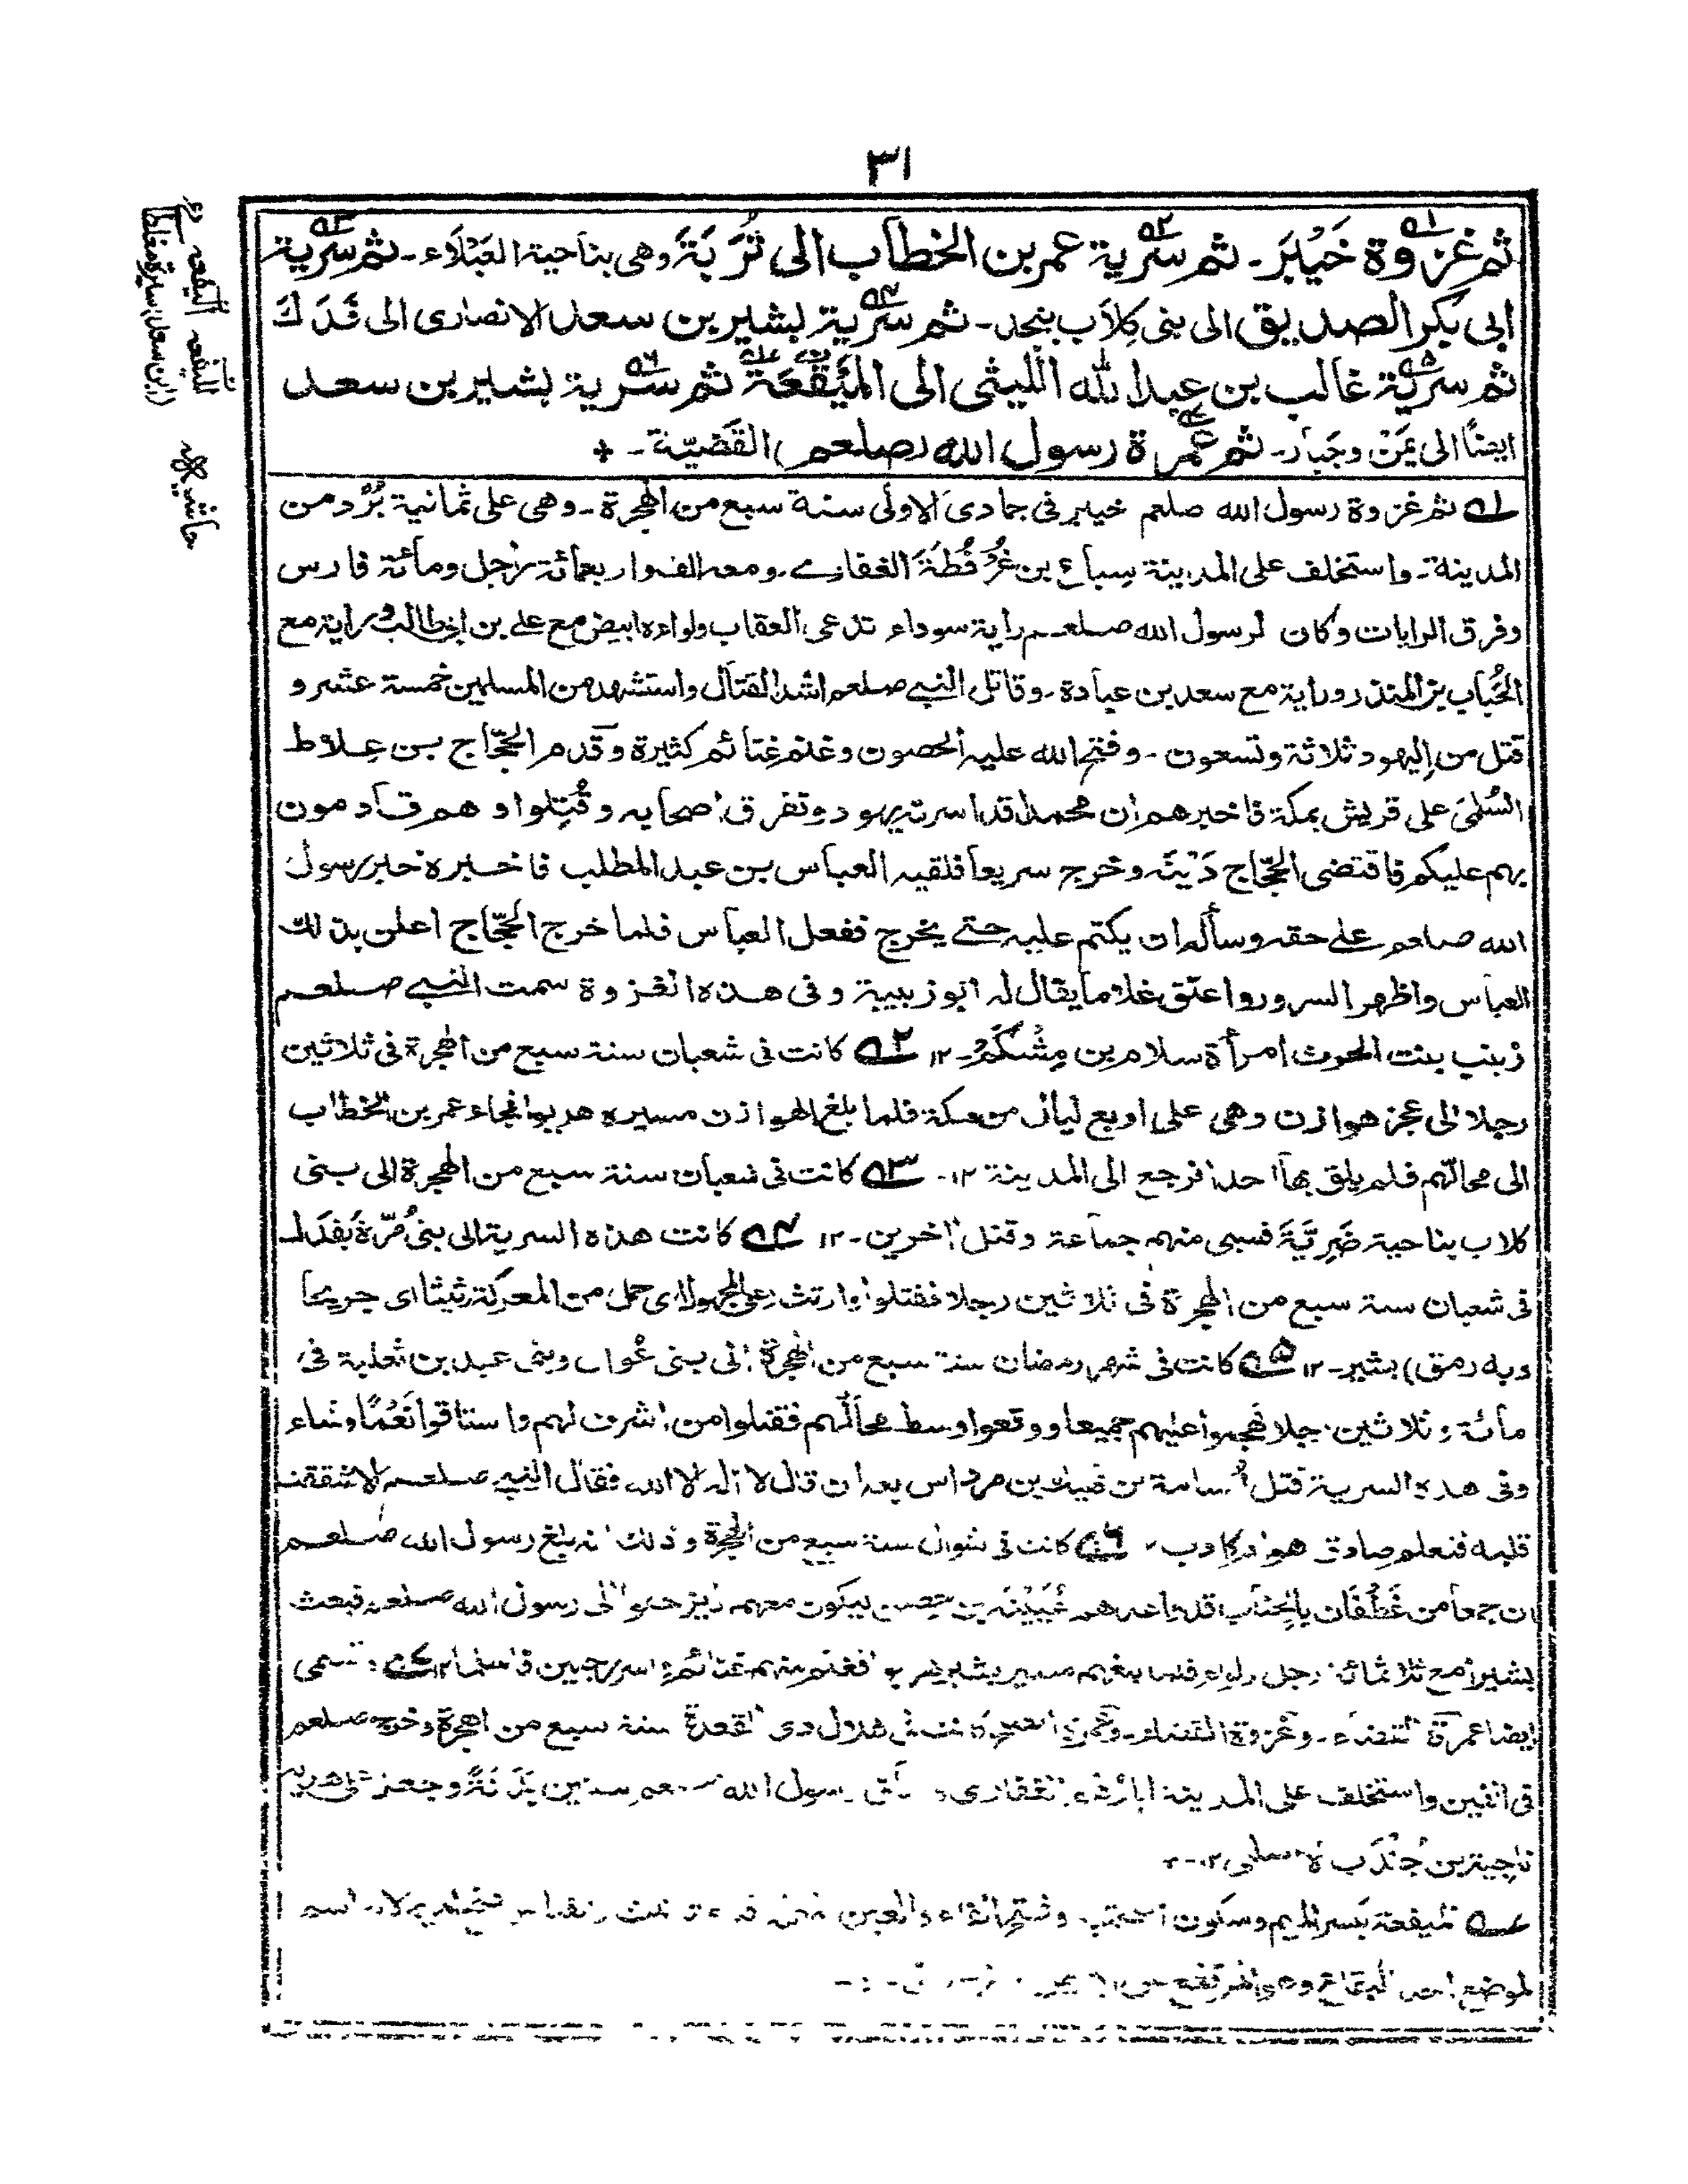 ٣١
ثم غزوة خَيْبَرَ۔ ثم سرية عمر بن الخطاب الى تُرَبَةَ وهى بناحية العَبْلَاء۔ ثم سرية
ابى بكر الصديق الى بنى كِلَاب بنجد۔ ثم سرية بشير بن سعد الانصارى الى فَدَكَ
ثم سرية غالب بن عبد الله الليثى الى المَيْقَعَة ثم سرية بشير بن سعد
ايضًا الى يَمَنْ وجَبَار۔ ثم عمرة رسول الله (صلعم) القَضيّة۔
١ ثم غزوة رسول الله صلعم خيبر فى جمادى الاولى سنة سبع من الهجرة۔ وهى على ثمانية بُرُد من
المدينة۔ واستخلف على المدينة سِباع بن عُرْفُطَةَ الغفارے۔ ومعه الف واربعمائة رجل ومائة فارس
وفرق الرايات وكان لرسول الله صلعم راية سوداء تدعى العقاب ولواءه ابيض مع على بن ابى طالب وراية مع
الحُباب بن المنذر وراية مع سعد بن عبادة۔ وقاتل النبى صلعم اشد القتال واستشهد من المسلمين خمسة عشر و
قتل من اليهود ثلاثة وتسعون۔ وفتح الله عليه الحصون وغنم غنائم كثيرة وقدم الحجّاج بن علاط
السُلمى على قريش بمكة فاخبرهم ان محمدا قد اسرته يهود وتفرق اصحابه وقُتِلوا وهم قادمون
بهم عليكم فاقتضى الحجّاج دَيْنَه وخرج سريعا فلقيه العباس بن عبد المطلب فاخبره خبر رسول
الله صلعم على حقه وسأله ان يكتم عليه حتى يخرج ففعل العباس فلما خرج الحجّاج اعلن بذلك
العباس واظهر السرور واعتق غلاما يقال له ابو زبيبة وفى هذه الغزوة سمت النبى صلعم
زينب بنت الحرث امرأة سلام بن مِشْكَمْ۔ ١٢ ٢ كانت فى شعبان سنة سبع من الهجرة فى ثلاثين
رجلا الى عجز هوازن وهى على اربع ليال من مكة فلما بلغ الهوازن مسيره هربوا فجاء عمر بن الخطاب
الى محالّهم فلم يلق بها احدا فرجع الى المدينة ١٢۔ ٣ كانت فى شعبان سنة سبع من الهجرة الى بنى
كلاب بناحية ضَرِيَّةَ فسبى منهم جماعة وقتل آخرين۔ ١٢ ٤ كانت هذه السرية الى بنى مُرّة بفدك
فى شعبان سنة سبع من الهجرة فى ثلاثين رجلا فقتلوا وارتث (على المجهول اى حمل من المعركة رثيثا اى جريحا
وبه رمق) بشير۔ ١٢ ٥ كانت فى شهر رمضان سنة سبع من الهجرة الى بنى عُوال وبنى عبد بن ثعلبة فى
مائة وثلاثين رجلا فهجموا عليهم جميعا ووقعوا وسط محالّهم فقتلوا من اشرف لهم واستاقوا نَعَمًا وشاء
وفى هذه السرية قتل أسامة بن مرداس بعد ان قال لا اله الا الله فقال النبى صلعم الا شققت
قلبه فتعلم صادق هو ام كاذب ٦ كانت فى شوال سنة سبع من الهجرة وذلك انه بلغ رسول الله صلعم
ان جمعا من غَطَفَان بالجِنَاب قد واعدهم عُيَيْنَة بن حصن ليكون معهم ليزحفوا الى رسول الله صلعم فبعث
بشيرا مع ثلاثمائة رجل فلما بلغهم مسير بشير هربوا فغنم منهم غنائم واسر رجلين فاسلما ١٢ ٧ وتسمى
ايضا عمرة القضاء۔ وغزوة القضاء۔ وعمرة كانت فى هلال ذى القعدة سنة سبع من الهجرة وخرج صلعم
فى الفين واستخلف على المدينة ابارُهم الغفارى وساق رسول الله صلعم ستين بَدَنَةً وجعل على هديه
ناجية بن جُنْدَب الاسلمى ١٢۔
الميقعة بكسر الميم وسكون وفتح القاف والعين اسم
لموضع البقاع وهو المرتفع من
المَيْقَعَة
(ابن سعد / سيرة مغلطا)
حاشيه